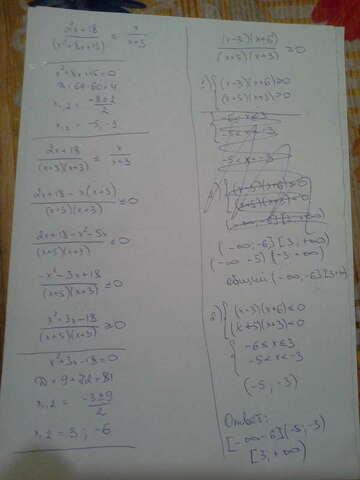 2x+18
(x²+8x+15) ≤ x
x+3
x²+8x+15=0
D=64-60=4
x1,2 = -8±2
2
x1,2 = -5, -3
2x+18
(x+5)(x+3) ≤ x
x+3
2x+18-x(x+5)
(x+5)(x+3) ≤0
2x+18-x²-5x
(x+5)(x+3) ≤0
-x²-3x+18
(x+5)(x+3) ≤0
x²+3x-18
(x+5)(x+3) ≥0
x²+3x-18=0
D=9+72=81
x1,2 = -3±9
2
x1,2 = 3; -6
(x-3)(x+6)
(x+5)(x+3) ≥0
1) { (x-3)(x+6)≥0
(x+5)(x+3)>0
(-∞;-6] [3;+∞)
(-∞ -5) (-3 +∞)
общий (-∞;-6] [3;+∞)
2) { (x-3)(x+6)≤0
(x+5)(x+3)<0
{ -6≤x≤3
-5<x<-3
(-5, -3)
Ответ:
[-∞ -6] (-5; -3)
[3; +∞)